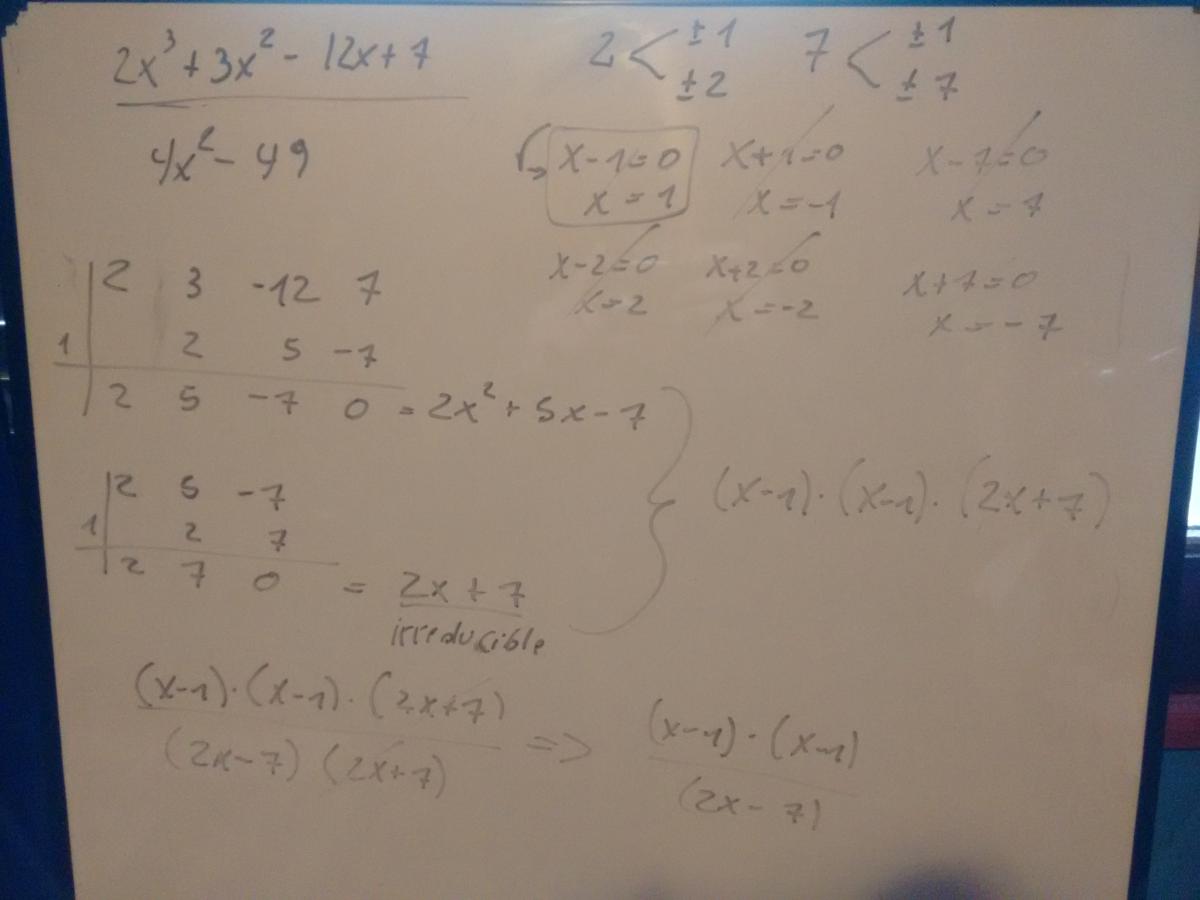 2x³ + 3x² - 12x + 7
4x² - 49
2 < ±1 ±2
7 < ±1 ±7
x-1=0 x+1=0 x-7=0
x=1 x=-1 x=7
x-2=0 x+2=0 x+7=0
x=2 x=-2 x=-7
2 3 -12 7
1 2 5 -7
2 5 -7 0 = 2x² + 5x - 7
2 5 -7
1 2 7
2 7 0 = 2x + 7
irreducible
(x-1)·(x-1)·(2x+7)
(x-1)·(x-1)·(2x+7)
(2x-7) (2x+7)
=> (x-1)·(x-1)
(2x-7)